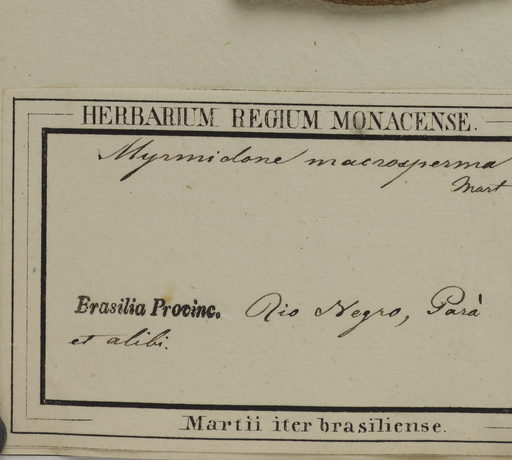 HERBARIUM REGIUM MONACENSE.
Myrmidone macrosperma
Mart
Brasilia Provinc. Rio Negro, Parà
et alibi.
Martii iter brasiliense.